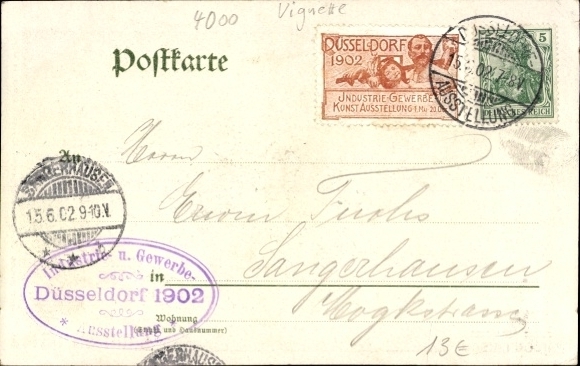 4000 Vignette
Postkarte
DÜSSELDORF
1902
INDUSTRIE-GEWERBE
KUNSTAUSSTELLUNG
5
REICH
DÜSSELDORF
AUSSTELLUNG
An
Herrn
Erwin Fuchs
Sangerhausen
Mogkstrasse
SANGERHAUSEN
15.6.02.9-10.V.
Industrie- u. Gewerbe-
in
Düsseldorf 1902
Ausstellung
Wohnung
(Straße und Hausnummer)
13€